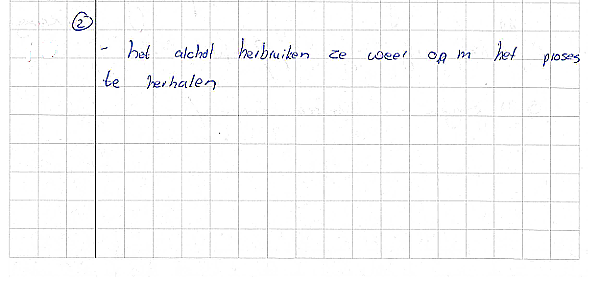 2
- het alchol herbruiken ze weer opm het proses
te herhalen